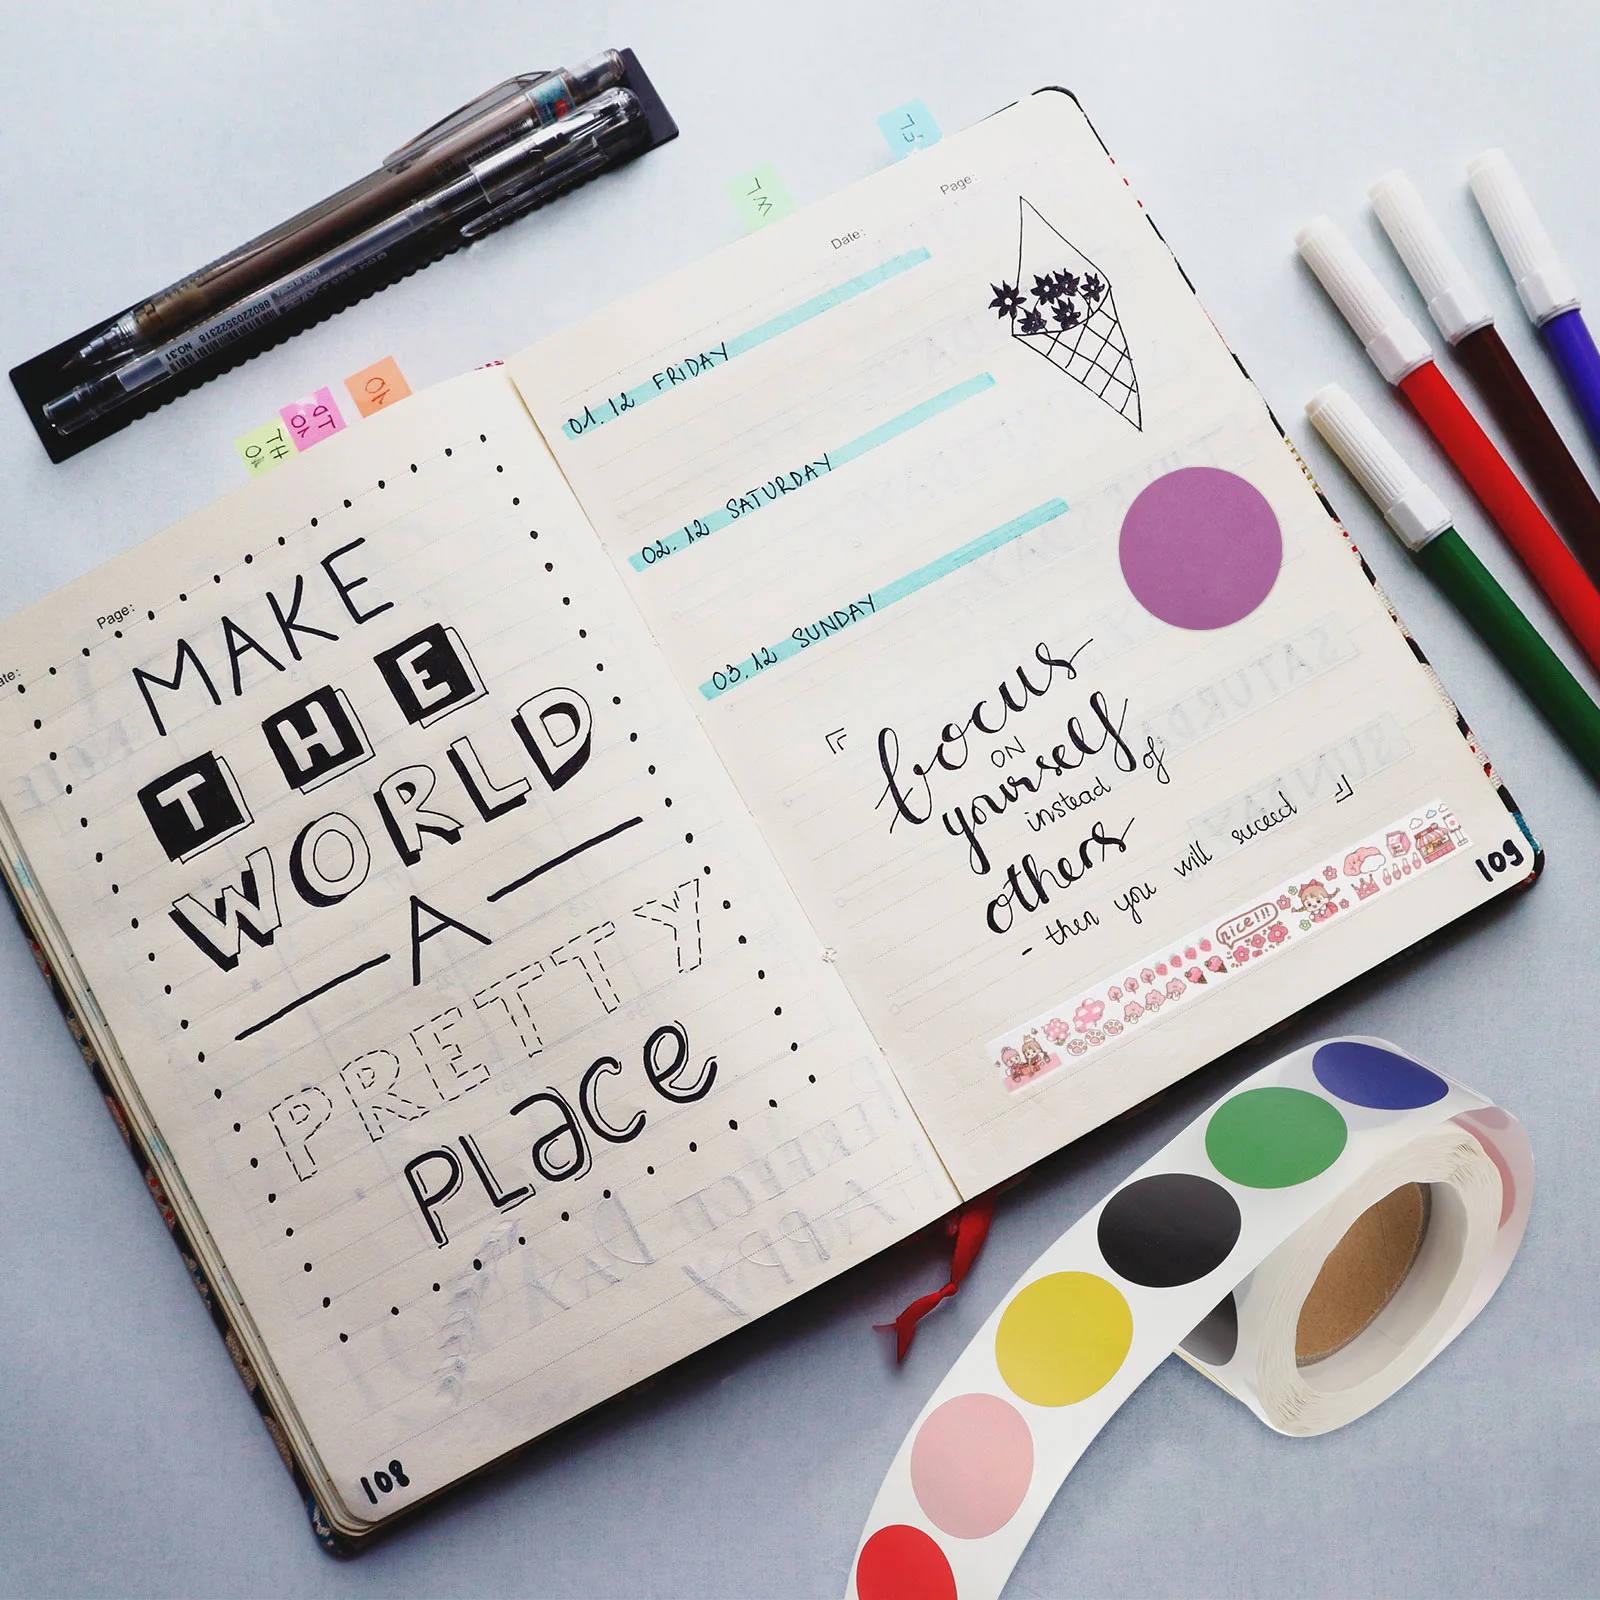 Page:
MAKE
THE
WORLD
A
PRETTY
PLace
108
Date:
Page:
01.12 FRIDAY
02.12 SATURDAY
03.12 SUNDAY
focus
ON
yourself
instead of
others
- then you will suceed
nice!!!
109
8802203522318 NO.31